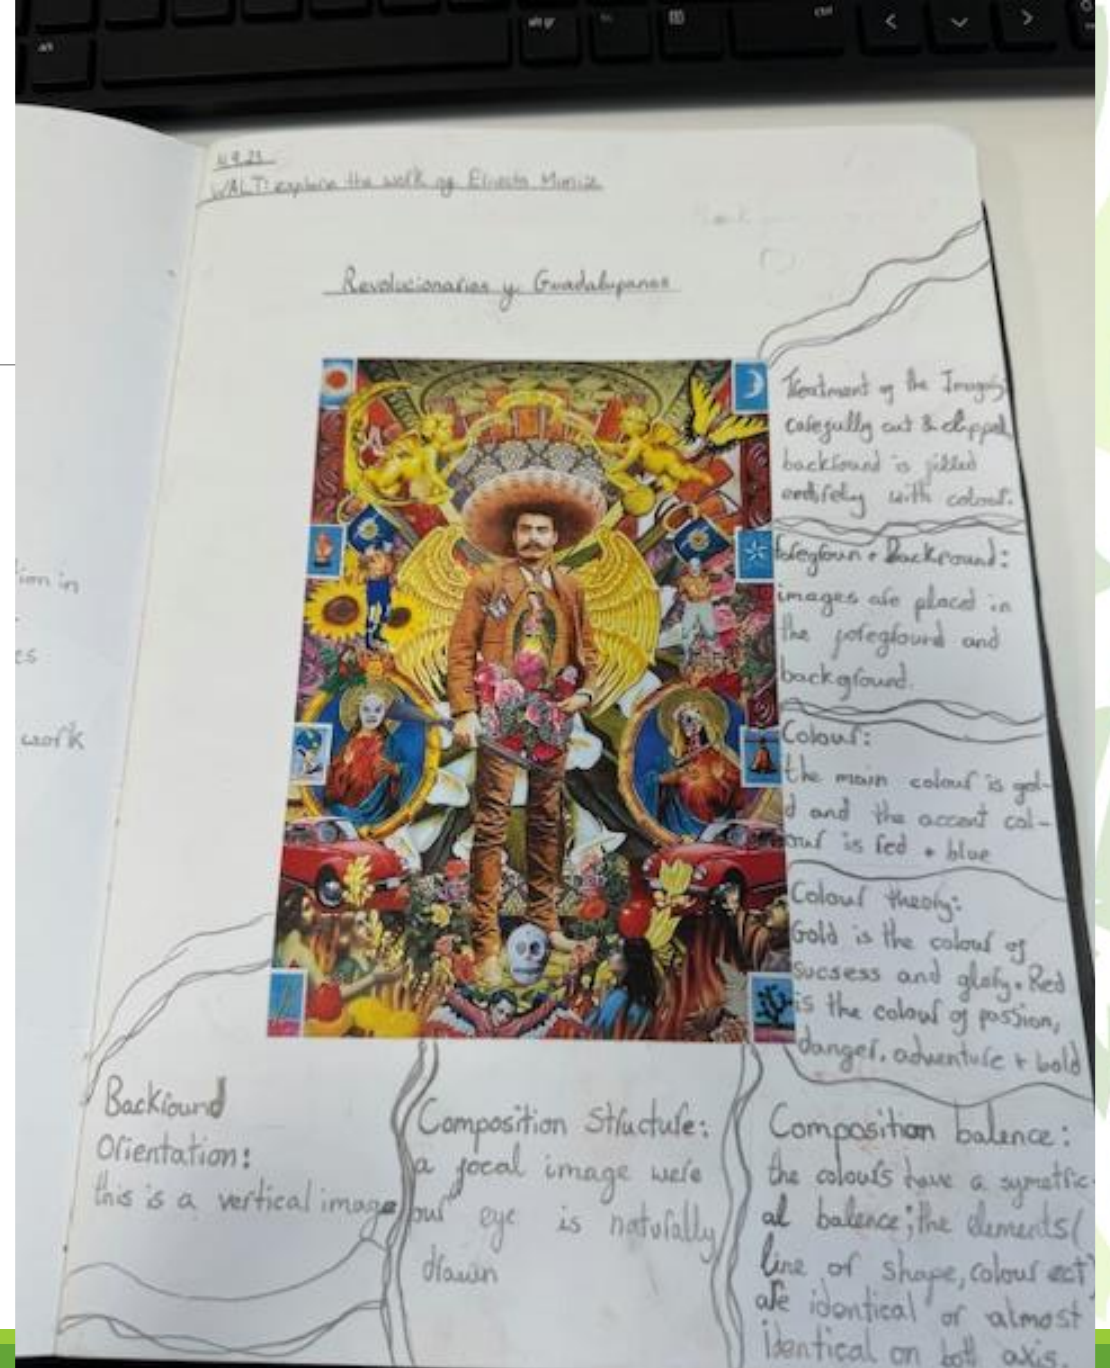 11.9.23
WALT: explore the work of Ernesto Muñiz
Revolucionarios y Guadalupanos
Treatment of the Imagry
carefully cut & clipped
backround is filled
entirely with colour.
foregroun + Backround:
images are placed in
the foreground and
background.
Colour:
the main colour is gol-
d and the accent col-
our is red + blue
Colour theory:
Gold is the colour of
sucsess and glory. Red
is the colour of passion,
danger, adventure + bold
Backround
Orientation:
this is a vertical image
Composition Structure:
a focal image were
our eye is naturally
drawn
Composition balence:
the colours have a symetric-
al balence; the elements (
line or shape, colour ect)
are identical or almost
identical on both axis
ion in
es
work
alt
alt gr
ctrl